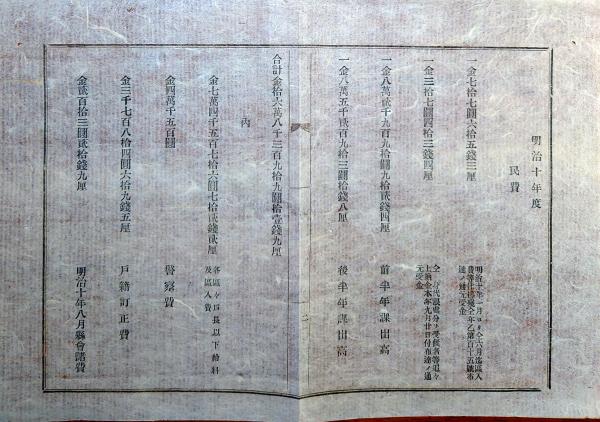 明治十年度
民費
一金七拾七圓六拾五錢三厘
明治十年一月ヨリ仝六月迄區入
費等仕拂殘仝年乙第百十五號布
達ノ通元受金
一金三拾七圓四拾三錢四厘
上納金本年九月廿日付布達ノ通
元受金
一金八萬貳千九百九拾貳錢四厘
前半年課出高
一金八萬五千貳百九拾三圓拾錢八厘
後半年課出高
合計金拾六萬八千三百九拾九圓拾壹錢九厘
內
金七萬四千五百七拾六圓七拾貳錢貳厘
各區々戶長以下給料
及區入費
金四萬千五百圓
警察費
金三千七百八拾四圓六拾九錢五厘
戶籍訂正費
金貳百拾三圓貳拾錢九厘
明治十年八月縣會諸費